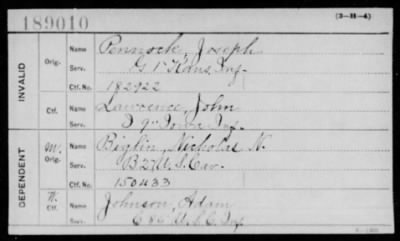 189010
(3-111-4)
INVALID
Orig. Name Pennock, Joseph
Serv. G 1" Kans, Inf.
Ctf. No. 182922
Ctf. Name Lawrence, John
Serv. I 9" Iowa Inf.
DEPENDENT
M. Orig. Name Biglin, Nicholas N.
Serv. B 2" U.S. Cav.
Ctf. No. 150433
W. Ctf. Name Johnson, Adam
Serv. C 86" U.S.C. Inf.